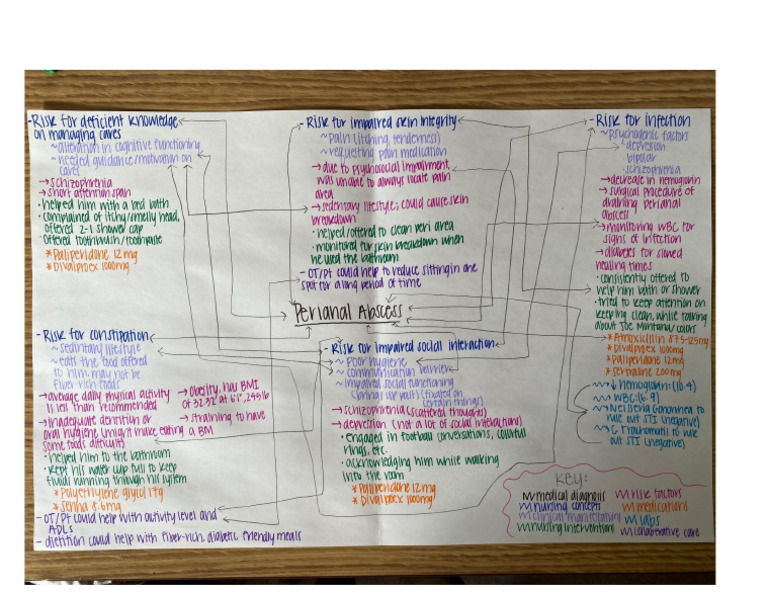 -Risk for deficient knowledge
on managing cares
~alteration in cognitive functioning
~needed guidance/motivation on
cares
→schizophrenia
→short attention span
·helped him with a bed bath
·complained of itchy/smelly head,
offered 2-1 shower cap
·offered toothbrush/toothpaste
*Paliperidone 12mg
*Divalproex 1000mg
-Risk for impaired skin integrity
~pain (itching, tenderness)
~requesting pain medication
→due to psychosocial impairment,
was unable to always locate pain
area
→sedentary lifestyle; could cause skin
breakdown
·helped/offered to clean peri area
·monitored for skin breakdown when
he used the bathroom
-OT/PT could help to reduce sitting in one
spot for a long period of time
-Risk for infection
~psychogenic factors
depression
bipolar
schizophrenia
→decrease in hemoglobin
→surgical procedure of
draining perianal
abscess
→monitoring WBC for
signs of infection
→diabetes for slowed
healing times
·consistently offered to
help him bath or shower
·tried to keep attention on
keeping clean, while talking
about Joe Montana/colors
*Amoxicillin 875-125mg
*Divalproex 1000mg
*Paliperidone 12mg
*Sertraline 200mg
↓ hemoglobin: (10.4)
WBC: (6.9)
Neisseria Gonorrhea to
rule out STI (negative)
C Trachomatis to rule
out STI (negative)
Perianal Abscess
-Risk for constipation
~sedintary lifestyle
~eats the food offered
to him may not be
fiber rich foods
→average daily physical activity
is less than recommended
→inadequate dentition or
oral hygiene (might make eating
some foods difficult)
→obesity, has BMI
of 32.32 at 6'1", 245lb
→straining to have
a BM
·helped him to the bathroom
·kept his water cup full to keep
fluids running through his system
*Polyethylene glycol 17g
*Senna 8.6mg
-OT/PT could help with activity level and
ADLs
-dietition could help with fiber-rich, diabetic friendly meals
-Risk for impaired social interaction
~poor hygiene
~communication barrier
~impaired social functioning
(fixated on
certain things)
→schizophrenia (scattered thoughts)
→depression (not a lot of social interaction)
·engaged in football conversations, colorful
rings, etc.
·acknowledging him while walking
into the room
*Paliperidone 12mg
*Divalproex 1000mg
Key:
medical diagnosis
nursing concepts
clinical manifestations
nursing interventions
risk factors
medications
labs
collaborative care